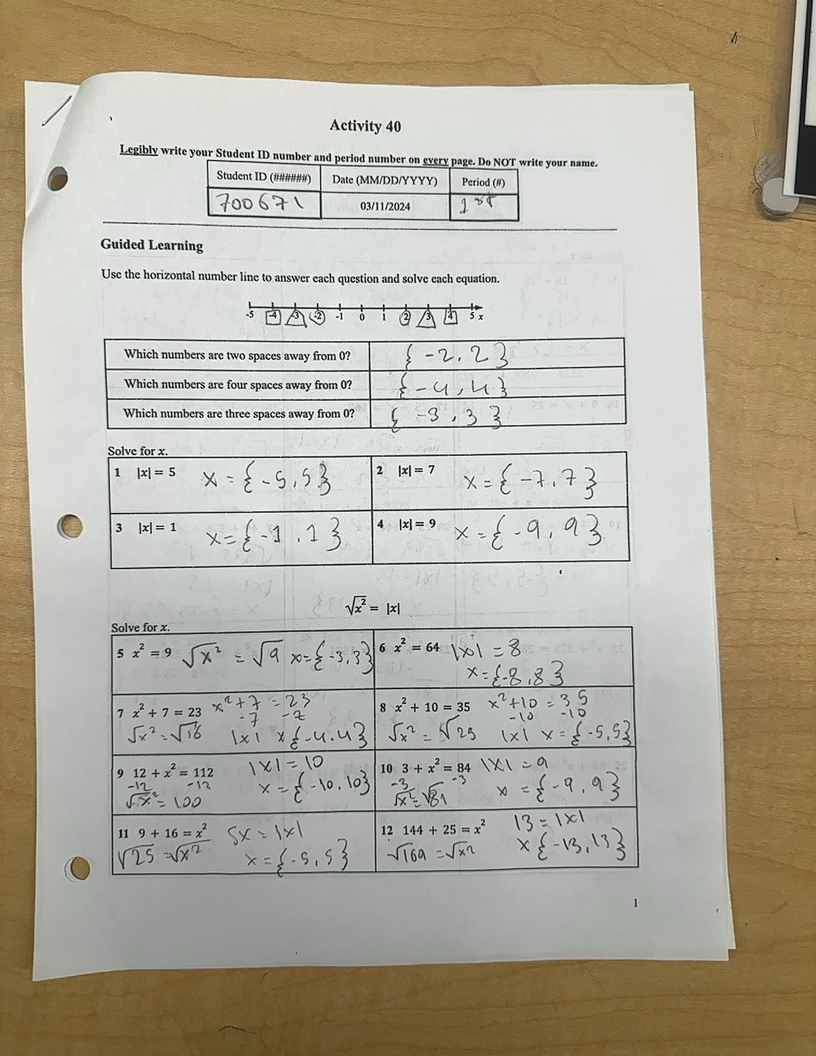 Activity 40
Legibly write your Student ID number and period number on every page. Do NOT write your name.
Student ID (######) Date (MM/DD/YYYY) Period (#)
700671 03/11/2024 1st
Guided Learning
Use the horizontal number line to answer each question and solve each equation.
-5 -4 -3 -2 -1 0 1 2 3 4 5 x
Which numbers are two spaces away from 0? { -2, 2 }
Which numbers are four spaces away from 0? { -4, 4 }
Which numbers are three spaces away from 0? { -3, 3 }
Solve for x.
1 |x| = 5 x = { -5, 5 }
2 |x| = 7 x = { -7, 7 }
3 |x| = 1 x = { -1, 1 }
4 |x| = 9 x = { -9, 9 }
√x² = |x|
Solve for x.
5 x² = 9 √x² = √9 x = { -3, 3 }
6 x² = 64 |x| = 8
x = { -8, 8 }
7 x² + 7 = 23 x² + 7 = 23
-7 -7
√x² = √16 |x| x { -4, 4 }
8 x² + 10 = 35 x² + 10 = 35
-10 -10
√x² = √25 |x| x = { -5, 5 }
9 12 + x² = 112 |x| = 10
-12 -12 x = { -10, 10 }
√x² = 100
10 3 + x² = 84 |x| = 9
-3 -3 x = { -9, 9 }
√x² = √81
11 9 + 16 = x² 5x = |x|
√25 = √x² x = { -5, 5 }
12 144 + 25 = x² 13 = |x|
√169 = √x² x { -13, 13 }
1